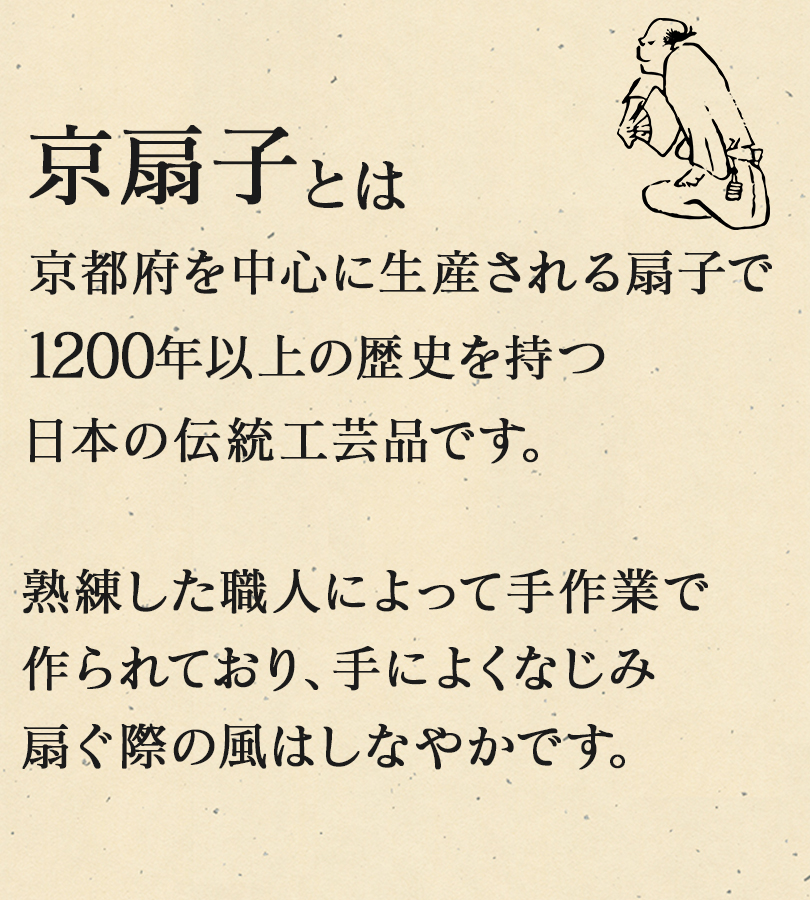 京扇子とは
京都府を中心に生産される扇子で
1200年以上の歴史を持つ
日本の伝統工芸品です。
熟練した職人によって手作業で
作られており、手によくなじみ
扇ぐ際の風はしなやかです。